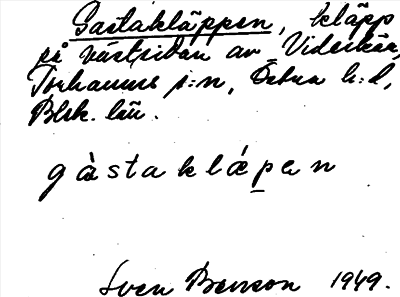 Gastakläppen, kläpp
på västsidan av Videskär,
Torhamns s:n, Östra h:d,
Blek. län.
gàstaklǻpen
Sven Benson 1949.